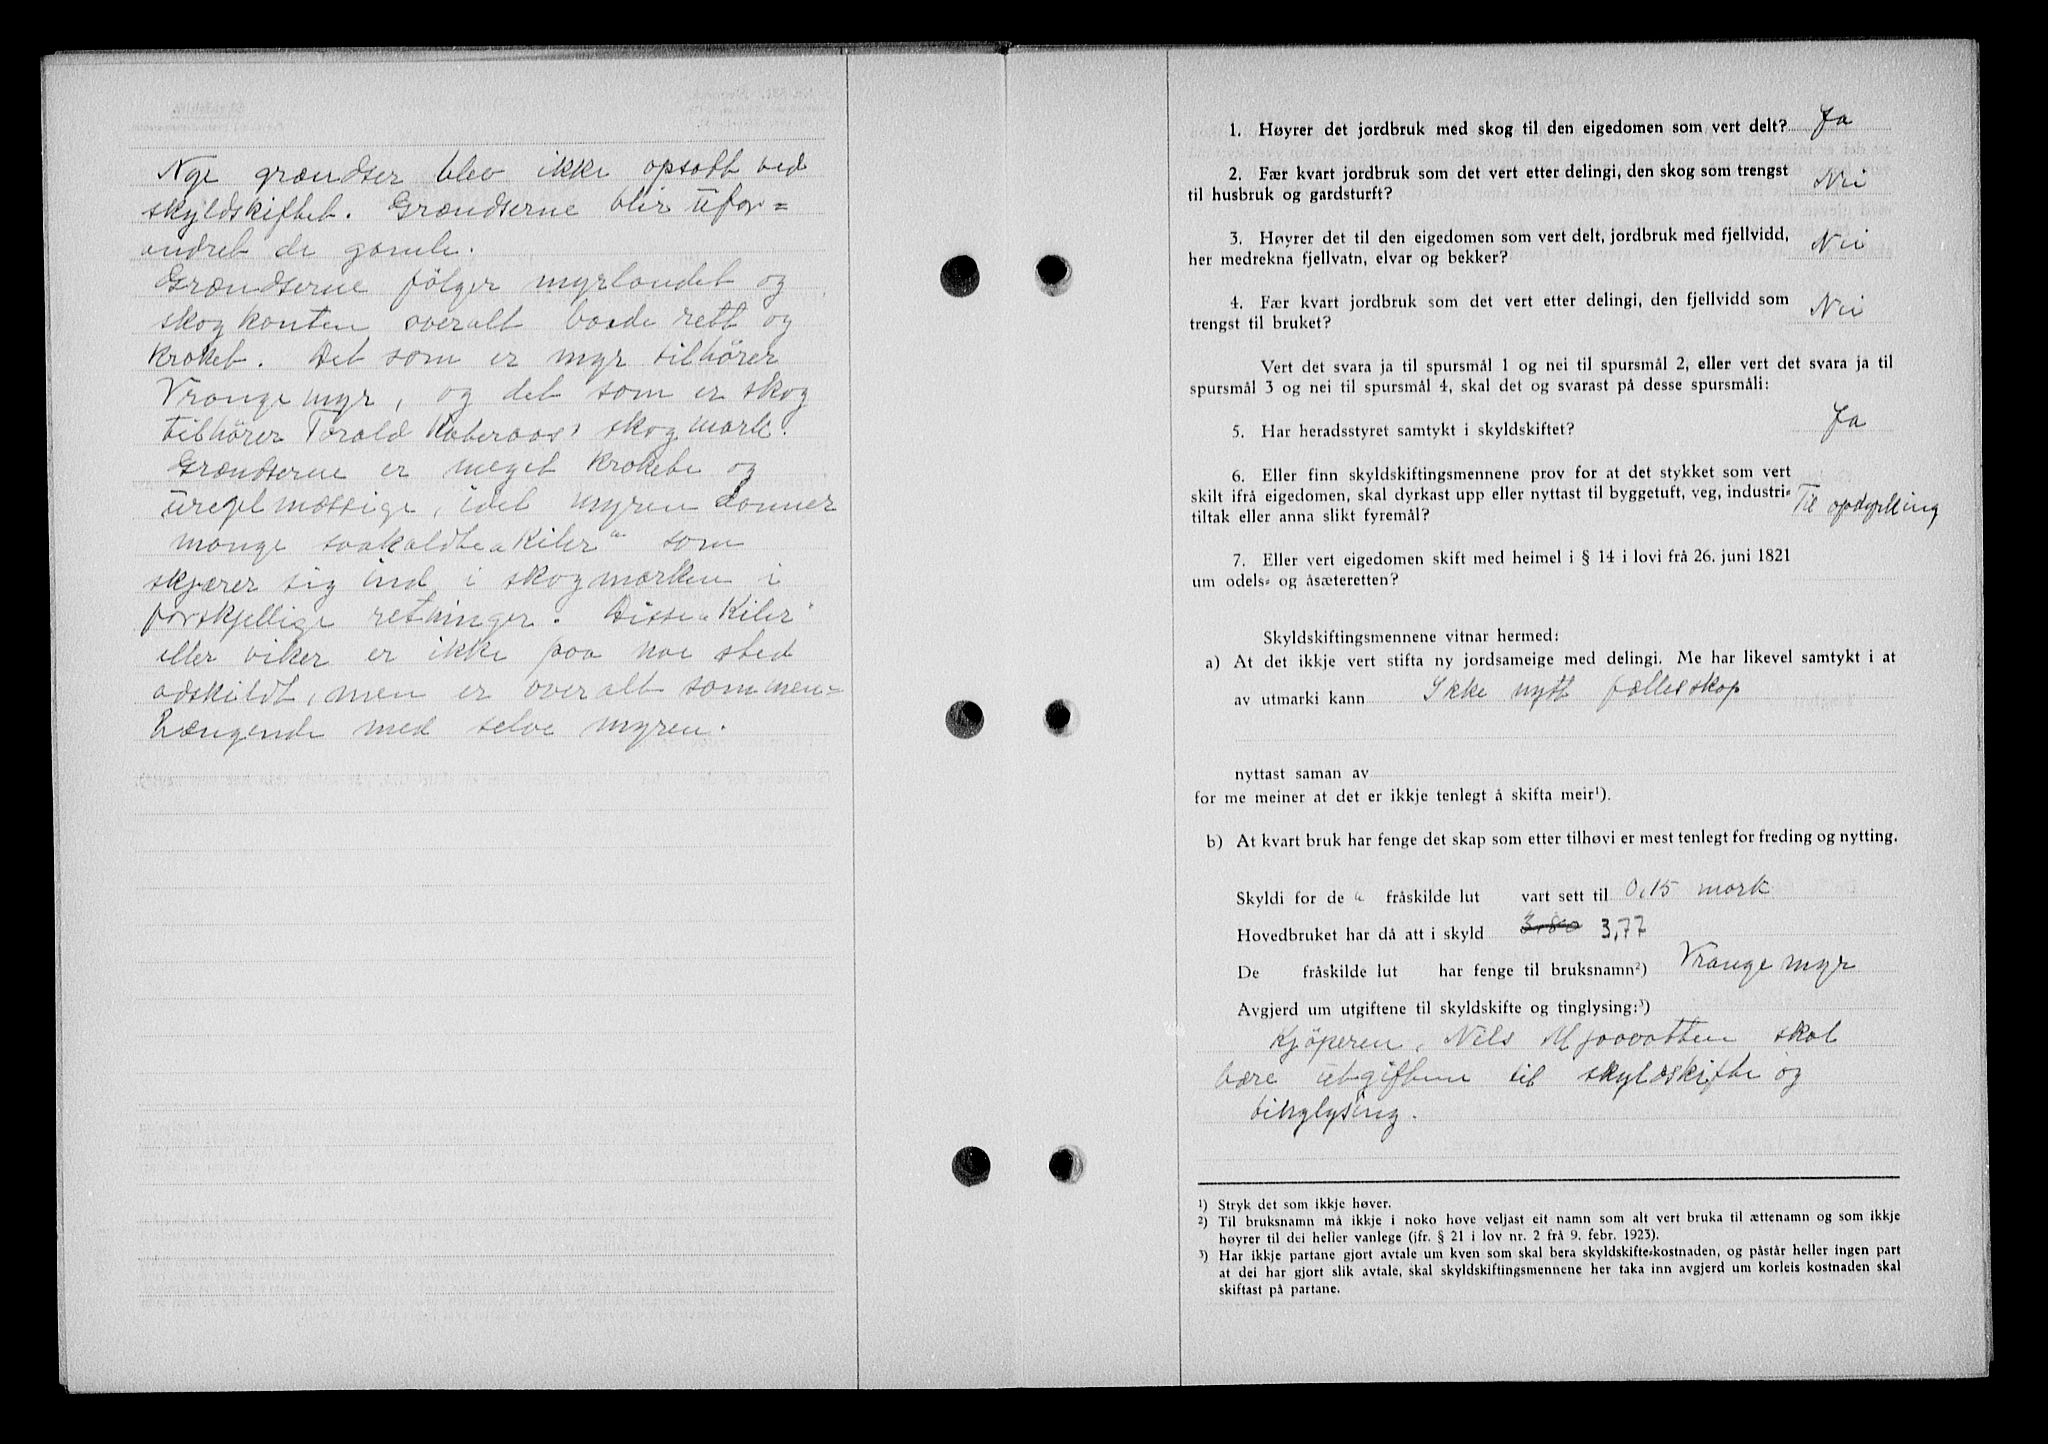 Nye grændser blev ikke opsatt ved
skyldskiftet. Grændserne blir ufor=
andret de gamle.
Grændserne følger myrlandet og
skogkanten overalt baade rett og
kroket. Det som er myr tilhører
Vrangemyr, og det som er skog
tilhører Torald skogmark.
Grændserne er meget krokete og
uregelmæssige, idet myren danner
mange saakaldte „Kiler" som
skjærer sig ind i skogmarken i
forskjellige retninger. Disse „Kiler"
eller viker er ikke paa noe sted
adskildt, men er overalt sammen=
hængende med selve myren.
1. Høyrer det jordbruk med skog til den eigedomen som vert delt? Ja
2. Fær kvart jordbruk som det vert etter delingi, den skog som trengst
til husbruk og gardsturft? Nei
3. Høyrer det til den eigedomen som vert delt, jordbruk med fjellvidd,
her medrekna fjellvatn, elvar og bekker? Nei
4. Fær kvart jordbruk som det vert etter delingi, den fjellvidd som
trengst til bruket? Nei
Vert det svara ja til spursmål 1 og nei til spursmål 2, eller vert det svara ja til
spursmål 3 og nei til spursmål 4, skal det og svarast på desse spursmåli:
5. Har heradsstyret samtykt i skyldskiftet? Ja
6. Eller finn skyldskiftingsmennene prov for at det stykket som vert
skilt ifrå eigedomen, skal dyrkast upp eller nyttast til byggetuft, veg, industri-
tiltak eller anna slikt fyremål? Til opdyrkning
7. Eller vert eigedomen skift med heimel i § 14 i lovi frå 26. juni 1821
um odels- og åsæteretten?
Skyldskiftingsmennene vitnar hermed:
a) At det ikkje vert stifta ny jordsameige med delingi. Me har likevel samtykt i at
av utmarki kann Ikke nytt fællesskap
nyttast saman av
for me meiner at det er ikkje tenlegt å skifta meir¹).
b) At kvart bruk har fenge det skap som etter tilhøvi er mest tenlegt for freding og nytting.
Skyldi for de fråskilde lut vart sett til 0,15 mark
Hovedbruket har då att i skyld 3,80 3,77
De fråskilde lut har fenge til bruksnamn²) Vrangemyr
Avgjerd um utgiftene til skyldskifte og tinglysing:³)
Kjøperen, Nils Mjaavatten skal
bære utgiftene til skyldskifte og
tinglysing.
¹) Stryk det som ikkje høver.
²) Til bruksnamn må ikkje i noko høve veljast eit namn som alt vert bruka til ættenamn og som ikkje
høyrer til dei heller vanlege (jfr. § 21 i lov nr. 2 frå 9. febr. 1923).
³) Har ikkje partane gjort avtale um kven som skal bera skyldskifte-kostnaden, og påstår heller ingen part
at dei har gjort slik avtale, skal skyldskiftingsmennene her taka inn avgjerd um korleis kostnaden skal
skiftast på partane.